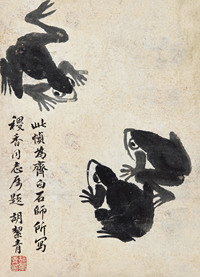 此幀為齊白石師所寫
稷香川志屬題 胡絜青